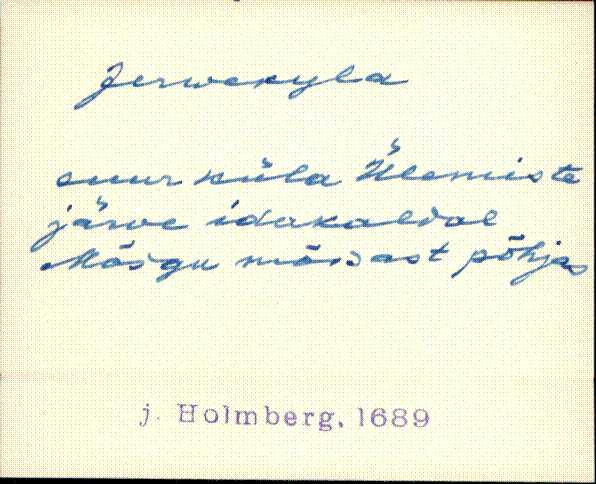 Jerwekyla
suur küla Ülemiste
järve idakaldal
Mõigu mõisast põhjas
j. Holmberg, 1689